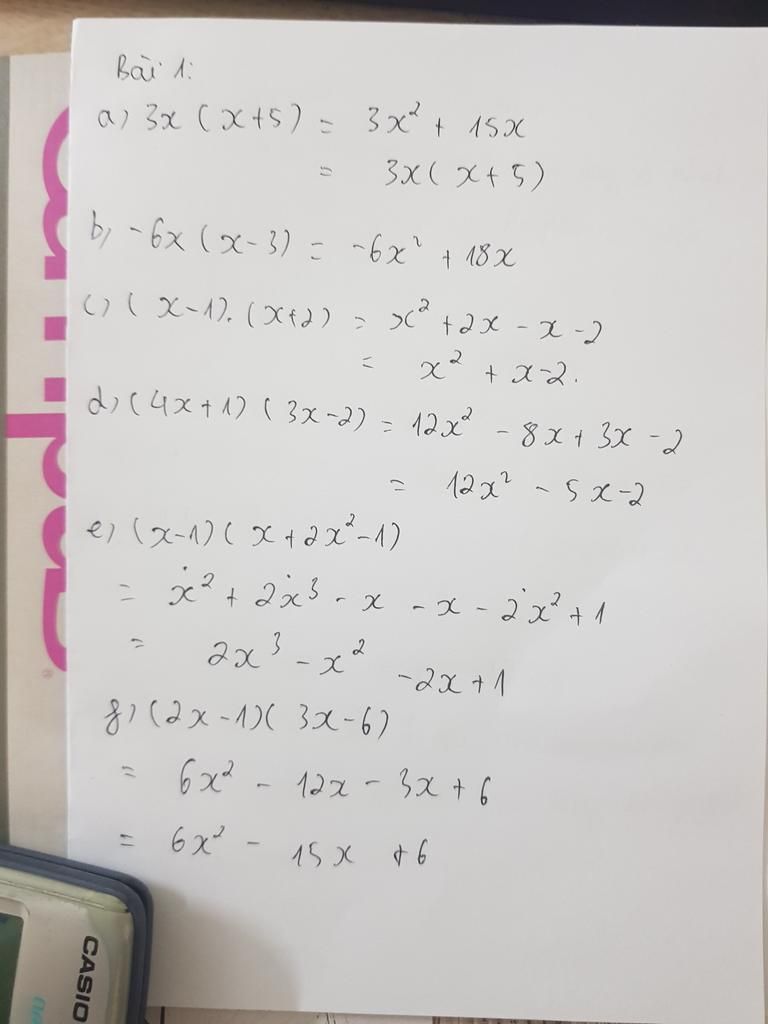 Bài 1:
a) 3x (x+5) = 3x² + 15x
= 3x( x+5)
b, -6x (x-3) = -6x² + 18x
c) ( x-1). (x+2) = x² +2x - x -2
= x² + x-2.
d) (4x+1) (3x-2) = 12x² - 8x + 3x - 2
= 12x² - 5x-2
e) (x-1)( x+2x²-1)
= x² + 2x³ - x - x - 2x² + 1
= 2x³ - x² -2x+1
f) (2x-1)( 3x-6)
= 6x² - 12x - 3x + 6
= 6x² - 15x + 6
CASIO